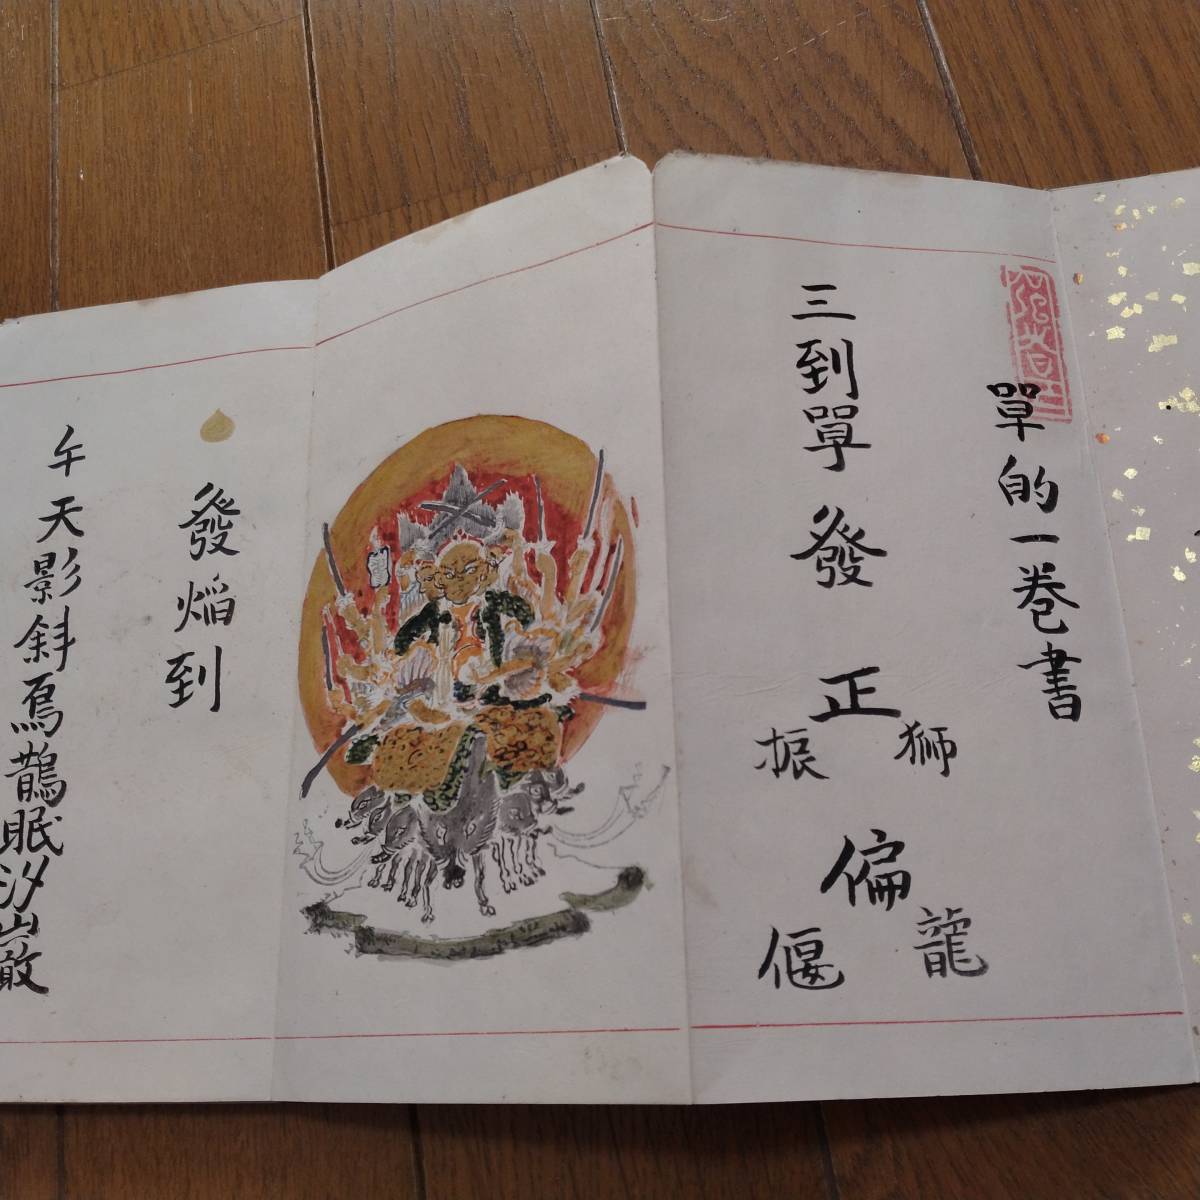 單的一卷書
三到單發
正
獅振
偏
龍偃
發焔到
午天影斜鳫鵲眠汐巌